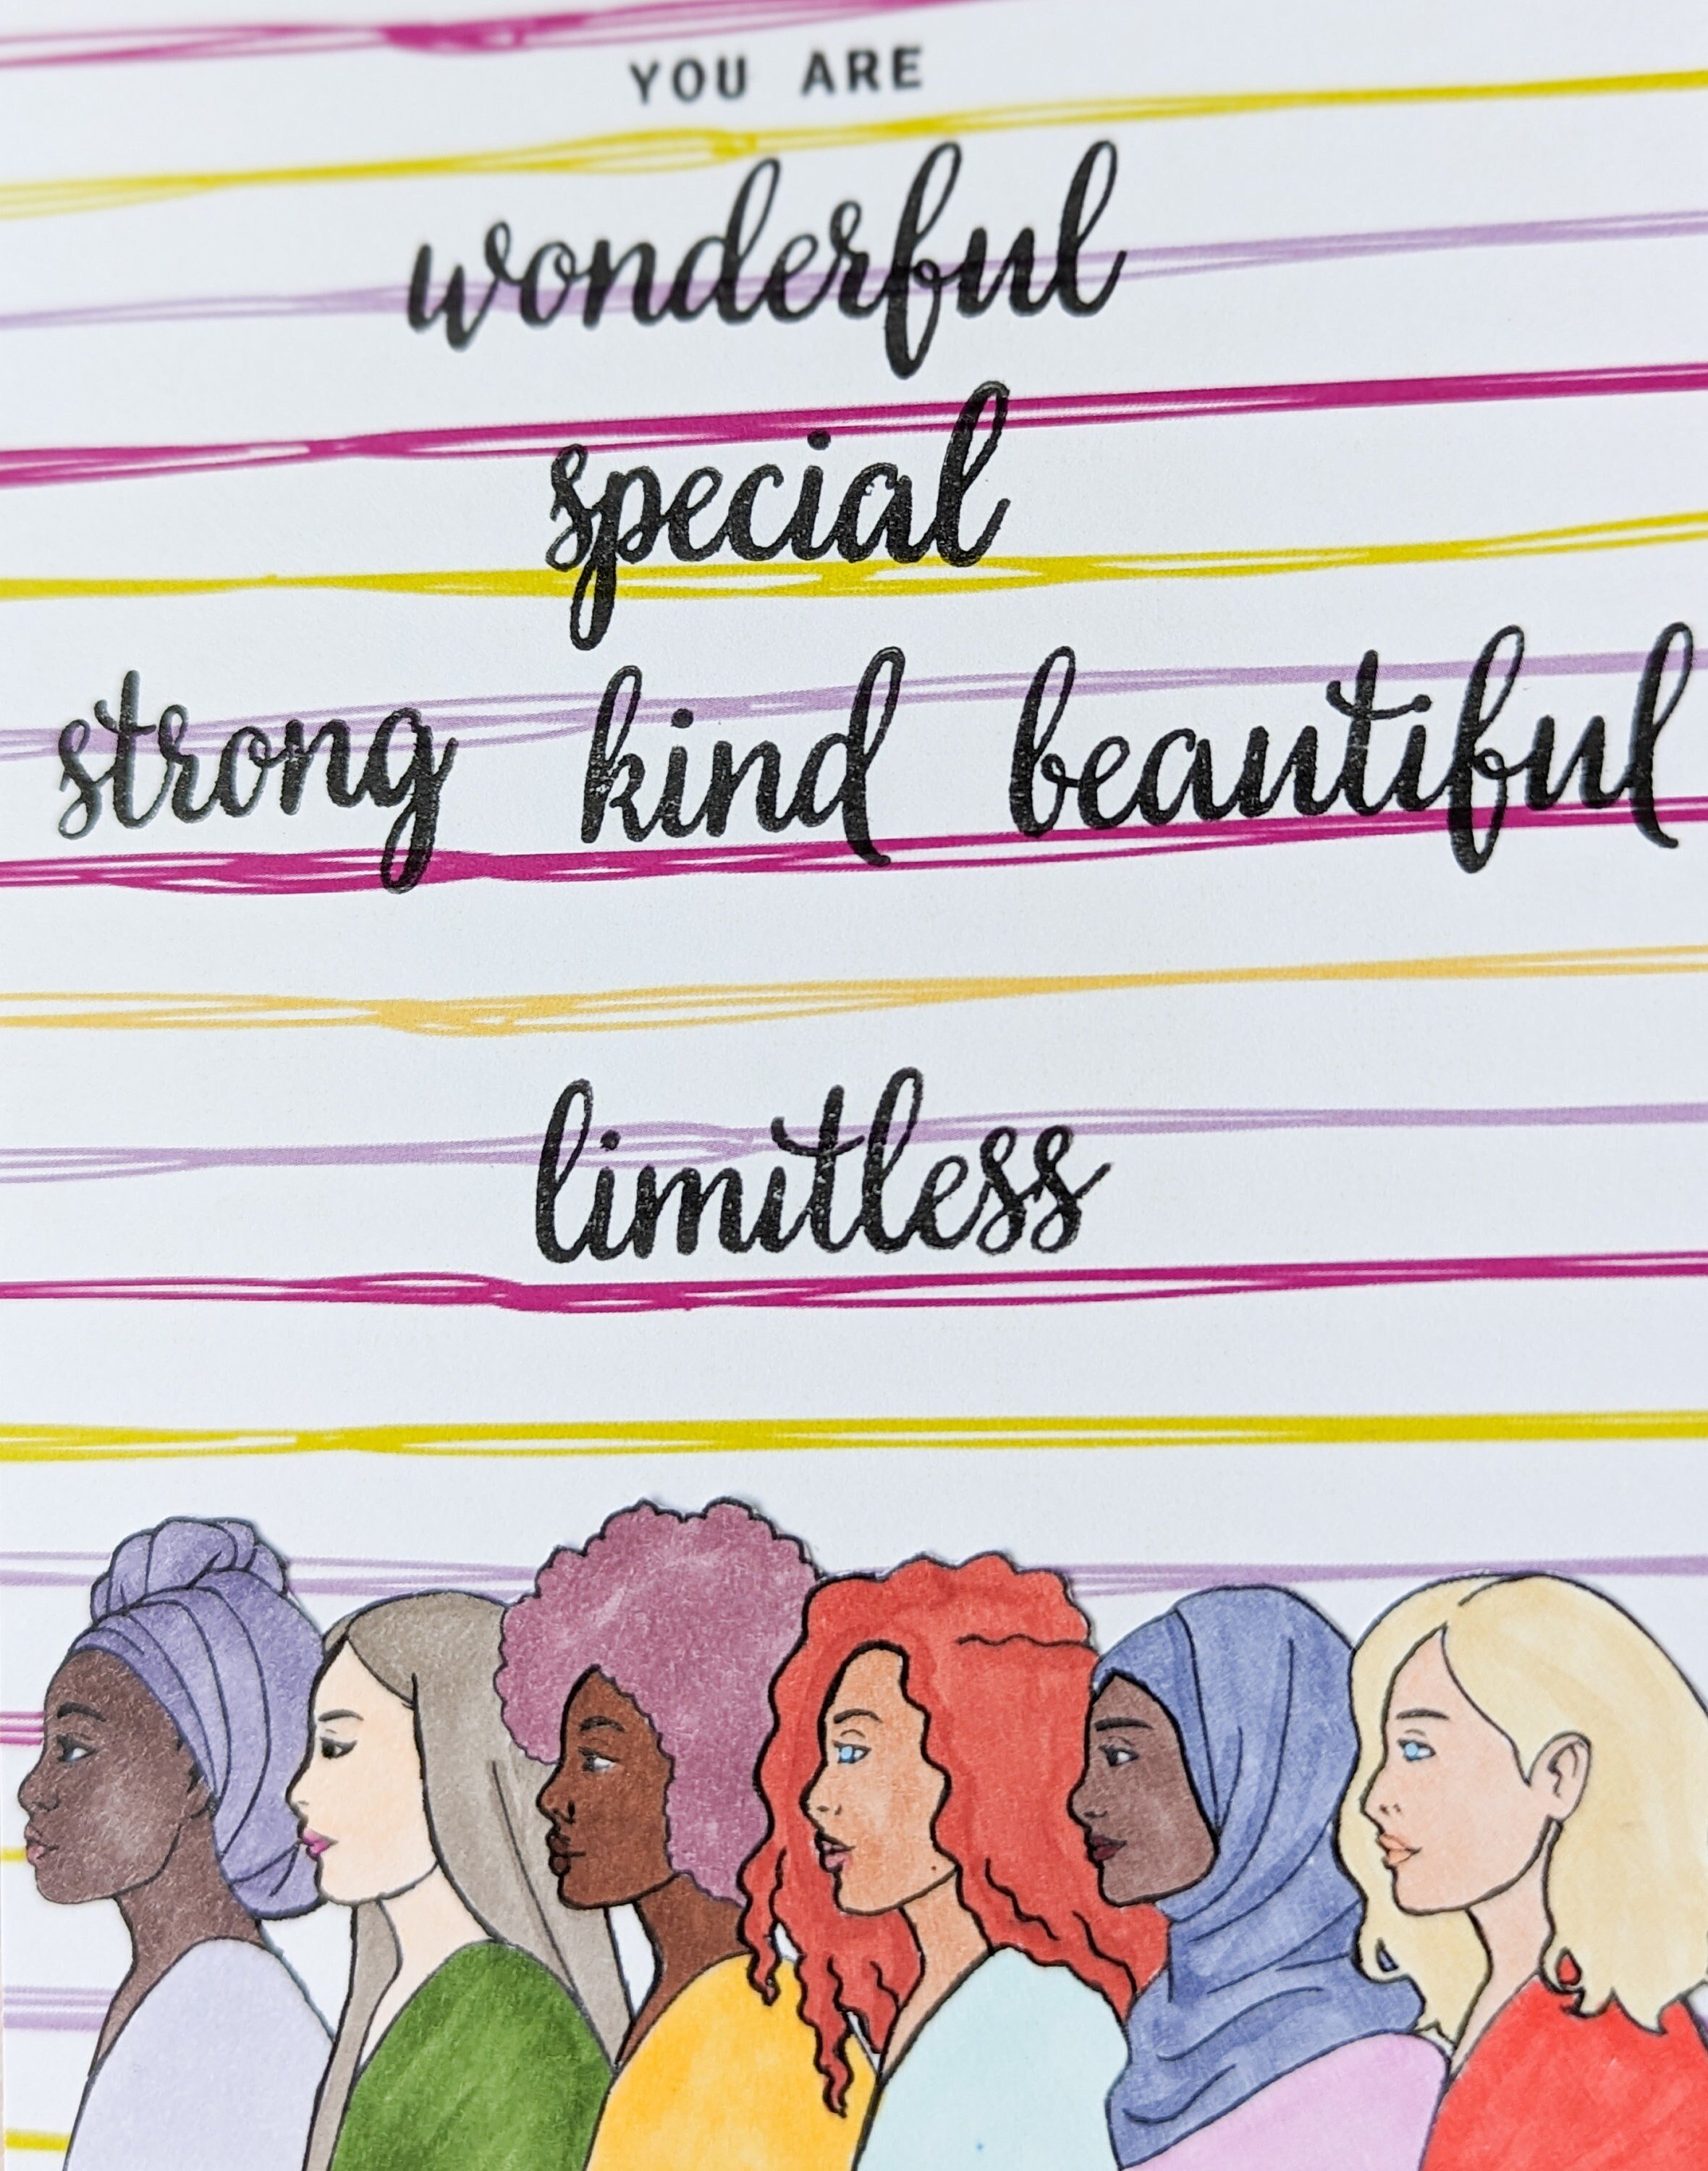 YOU ARE
wonderful
special
strong kind beautiful
limitless